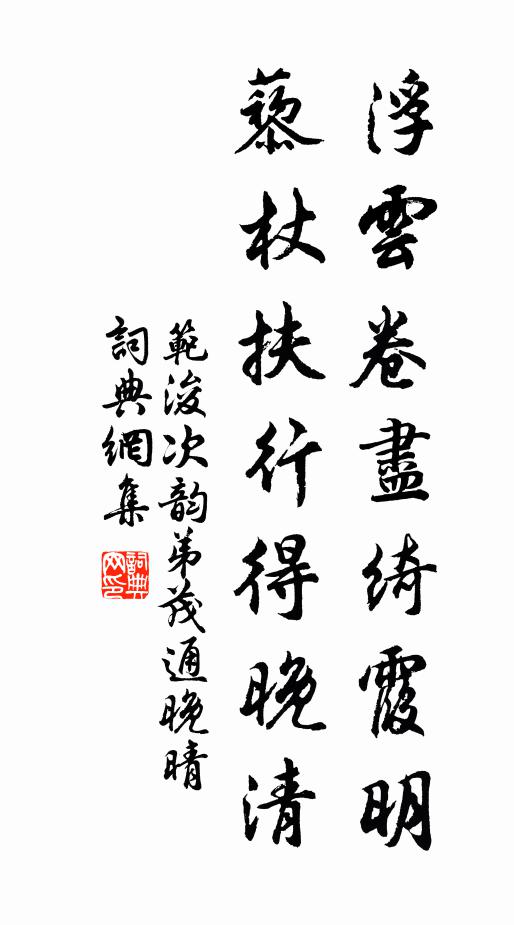 浮雲卷盡綺霞明
藜杖扶行得晚清
範浚次韵弟茂通晚晴
詞典網集
詞典网印